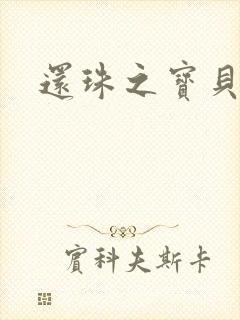 還珠之寶貝
賓科夫斯卡